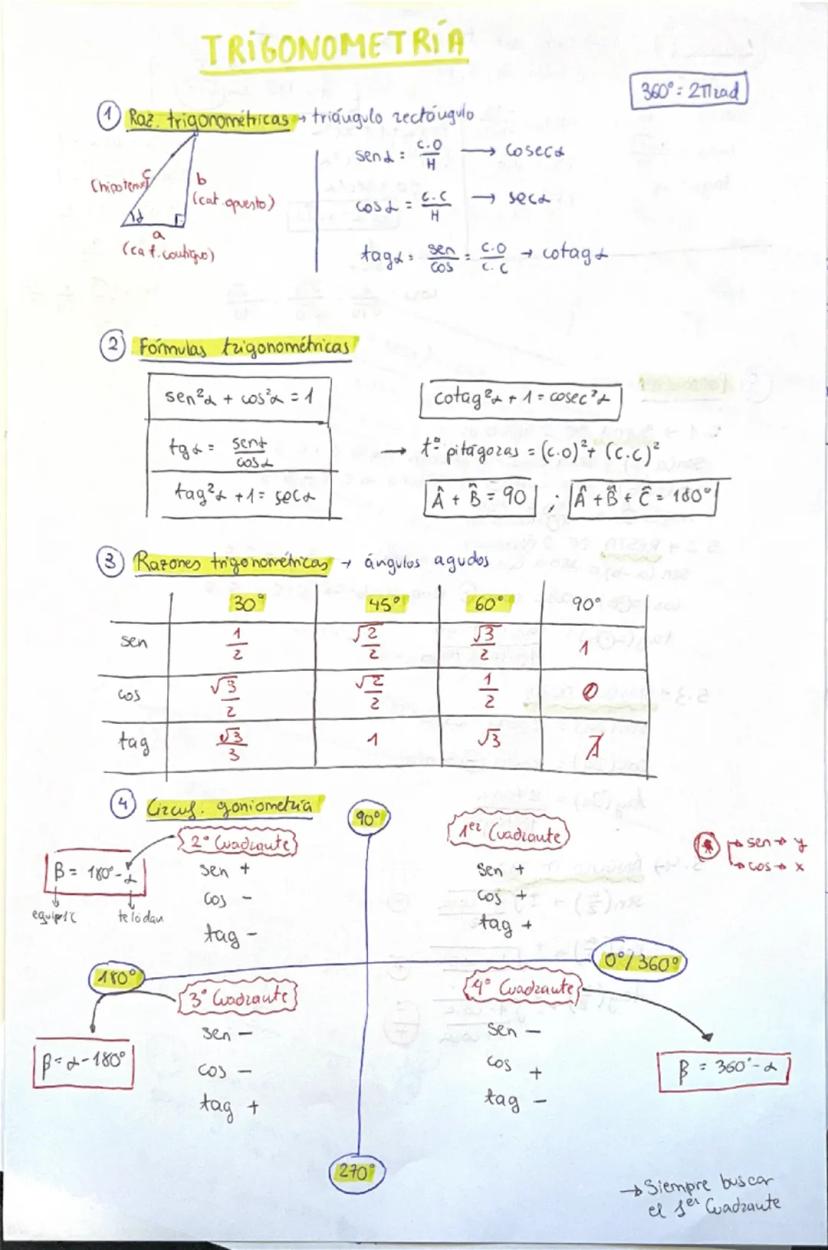 TRIGONOMETRÍA
360° = 2π rad
① Raz. trigonométricas → triángulo rectángulo
c
(hipotenusa)
b
(cat. opuesto)
α
a
(cat. contiguo)
senα = C.O/H → cosecα
cosα = C.C/H → secα
tagα = sen/cos = C.O/C.C → cotagα
② Fórmulas trigonométricas
sen²α + cos²α = 1
cotag²α + 1 = cosec²α
tgα = senα/cosα
→ tª pitágoras = (C.O)² + (C.C)²
tag²α + 1 = secα
Â + B̂ = 90 ; Â + B̂ + Ĉ = 180°
③ Razones trigonométricas → ángulos agudos
30° 45° 60° 90°
sen 1/2 √2/2 √3/2 1
cos √3/2 √2/2 1/2 0
tag √3/3 1 √3 ∄
④ Circuf. goniometría
90°
2º Cuadrante
sen +
cos -
tag -
β = 180° - α
te lo dan
1er Cuadrante
sen +
cos +
tag +
* → sen → y
→ cos → x
180°
0°/360°
3º Cuadrante
sen -
cos -
tag +
β = α - 180°
4º Cuadrante
sen -
cos +
tag -
β = 360° - α
270°
→ Siempre buscar
el 1er Cuadrante